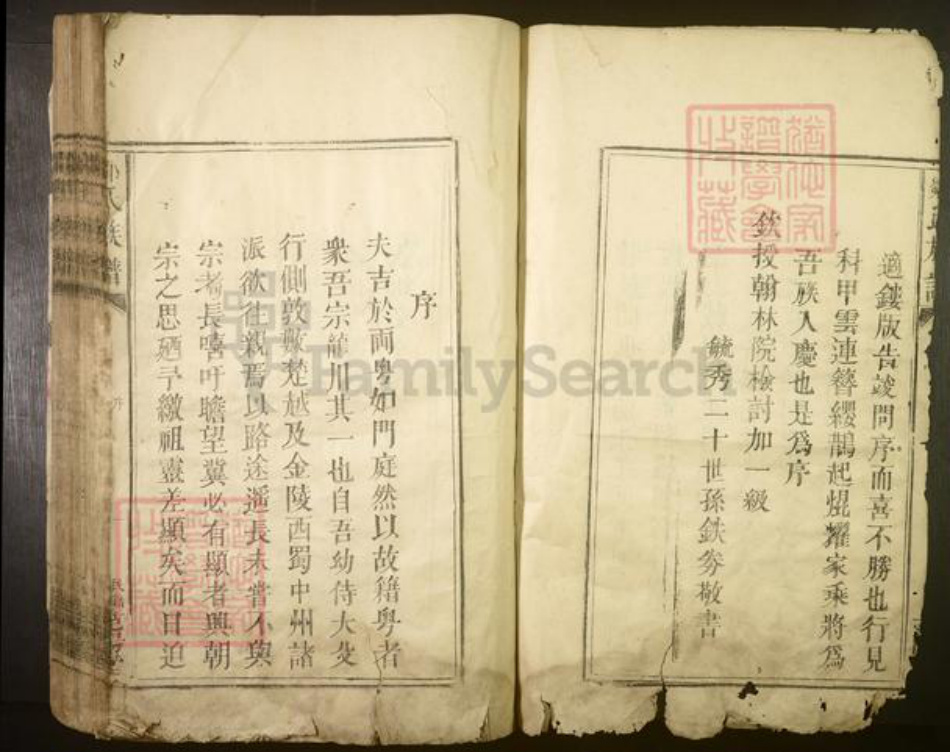 適鏤版告竣問序而喜不勝也行見
科甲雲連簪纓鵲起焜耀家乘將爲
吾族入慶也是爲序
欽授翰林院檢討加一級
毓秀二十世孫鉄劵敬書
序
夫吉於両粵如門庭然以故籍粵者
衆吾宗龍川其一也自吾幼侍大父
行側敦數楚越及金陵西蜀中州諸
派欲往親焉以路途遥長未嘗不與
宗者長嘻吁瞻望冀必有顯者興朝
宗之思廼予繳祖靈差顯矣而日迫
氏族譜
FamilySearch
譜學會
收藏